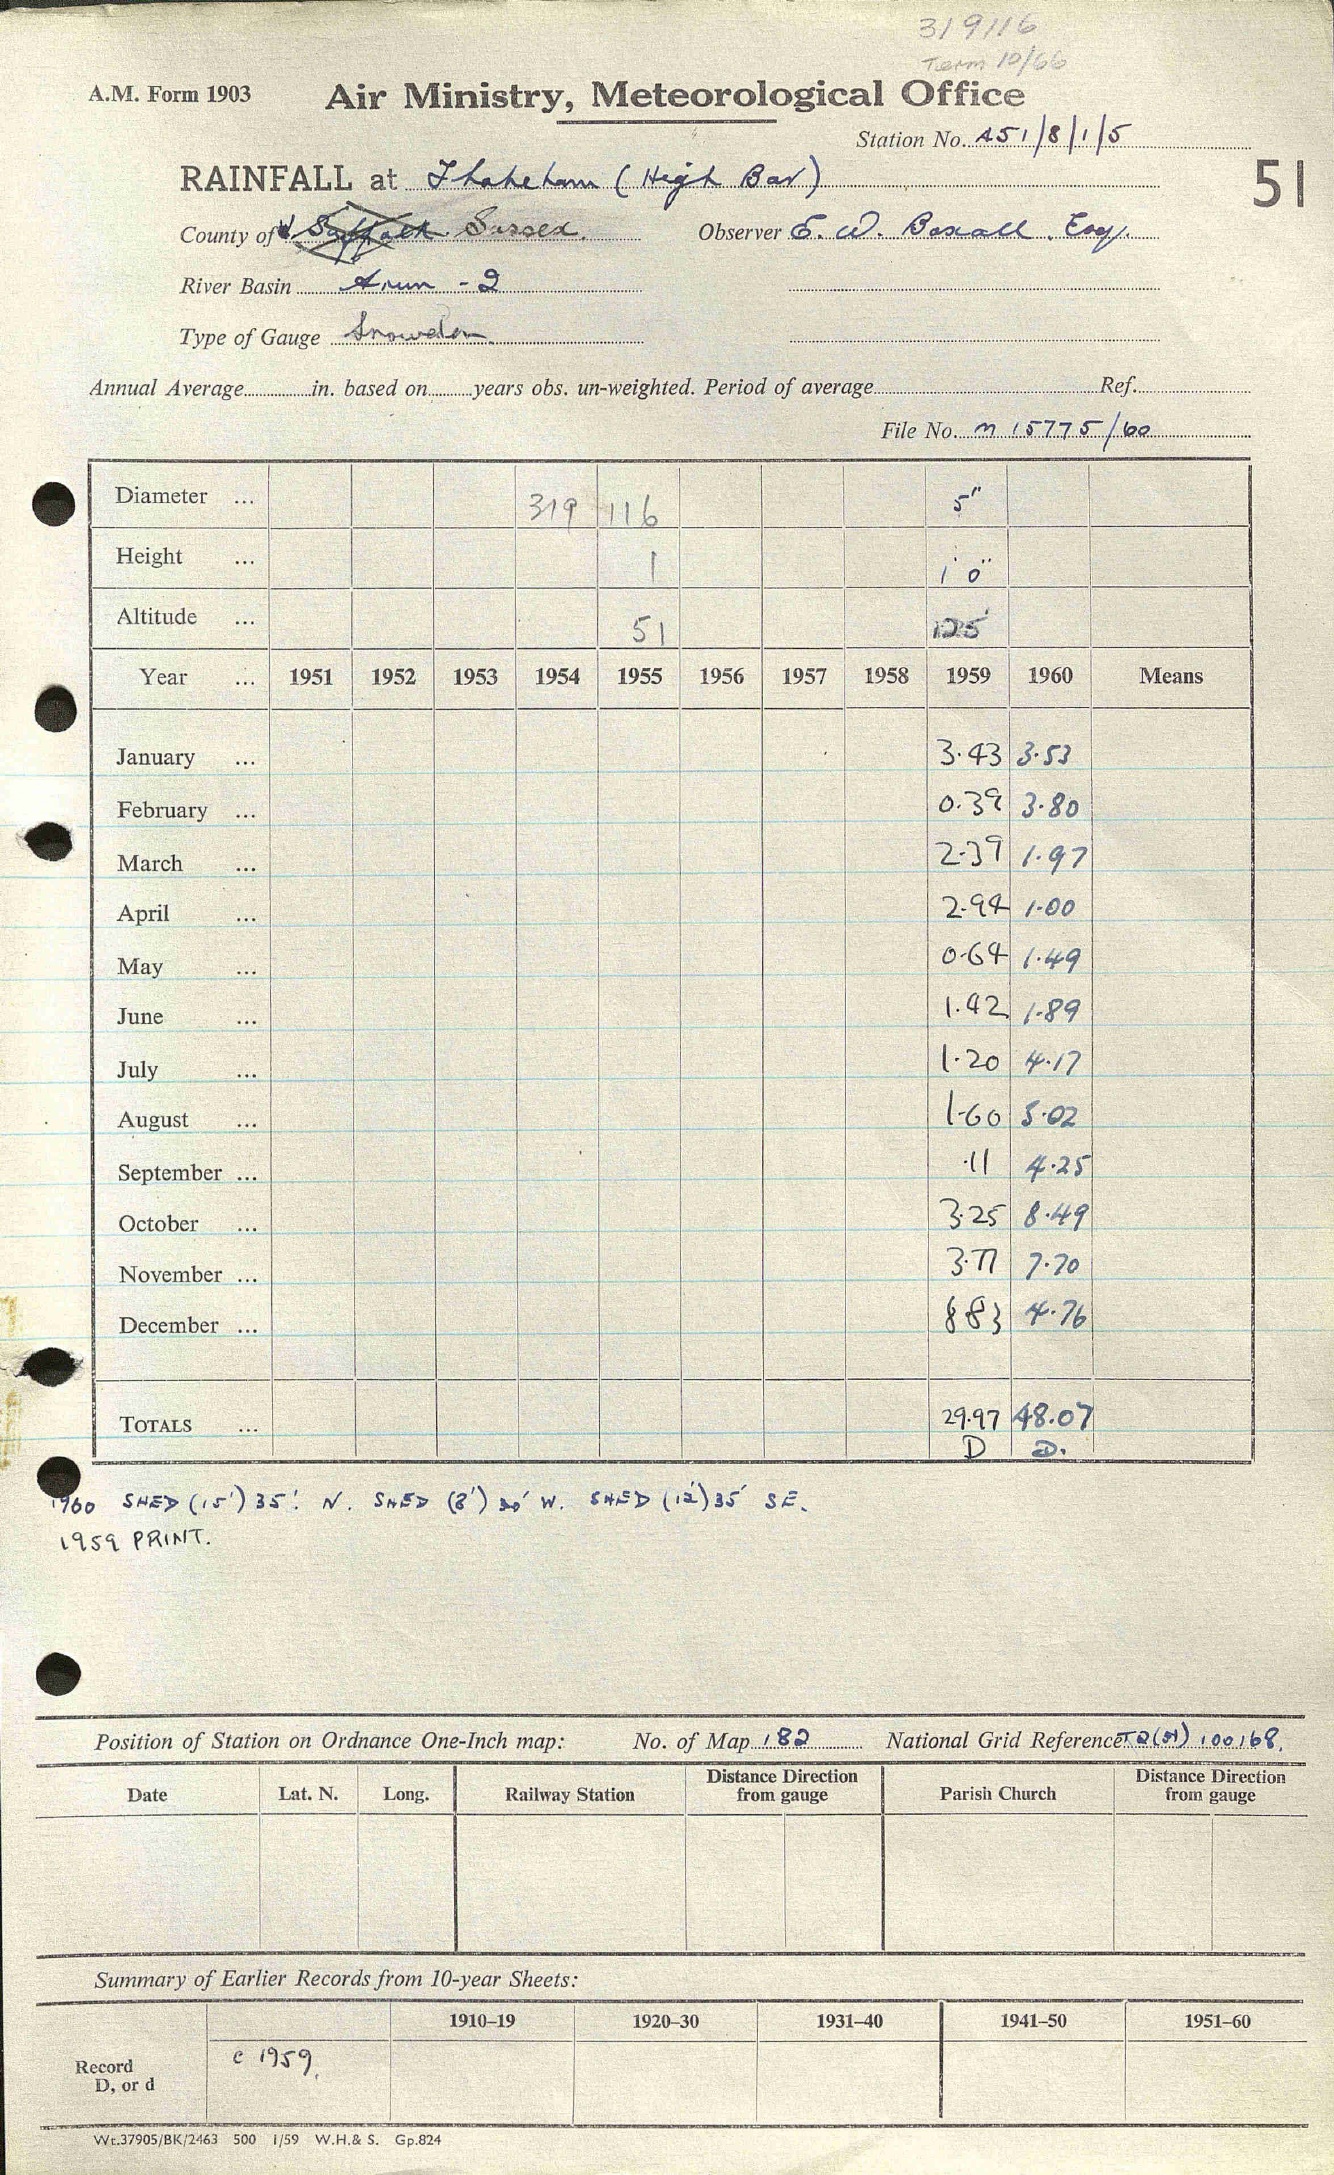 319116
Term 10/66
A.M. Form 1903 Air Ministry, Meteorological Office
Station No. A51/8/1/5
51
RAINFALL at Thakeham (High Bar)
County of W Suffolk Sussex. Observer E. W. Boxall, Esq.
River Basin Arun - 2
Type of Gauge Snowdon
Annual Average in. based on years obs. un-weighted. Period of average Ref.
File No. M 15775/60
Diameter ... 319 116 5"
Height ... 1 1' 0"
Altitude ... 51 125'
Year ... 1951 1952 1953 1954 1955 1956 1957 1958 1959 1960 Means
January ... 3.43 3.53
February ... 0.39 3.80
March ... 2.39 1.97
April ... 2.94 1.00
May ... 0.64 1.49
June ... 1.42 1.89
July ... 1.20 4.17
August ... 1.60 5.02
September ... .11 4.25
October ... 3.25 8.49
November ... 3.77 7.70
December ... 8.83 4.76
TOTALS ... 29.97 48.07
D D.
1960 SHED (15') 35' N. SHED (8') 30' W. SHED (12') 35' SE.
1959 PRINT.
Position of Station on Ordnance One-Inch map: No. of Map 182 National Grid Reference TQ(51) 100168.
Date Lat. N. Long. Railway Station Distance Direction from gauge Parish Church Distance Direction from gauge
Summary of Earlier Records from 10-year Sheets:
1910–19 1920–30 1931–40 1941–50 1951–60
Record D, or d c 1959.
Wt.37905/BK/2463 500 1/59 W.H.& S. Gp.824